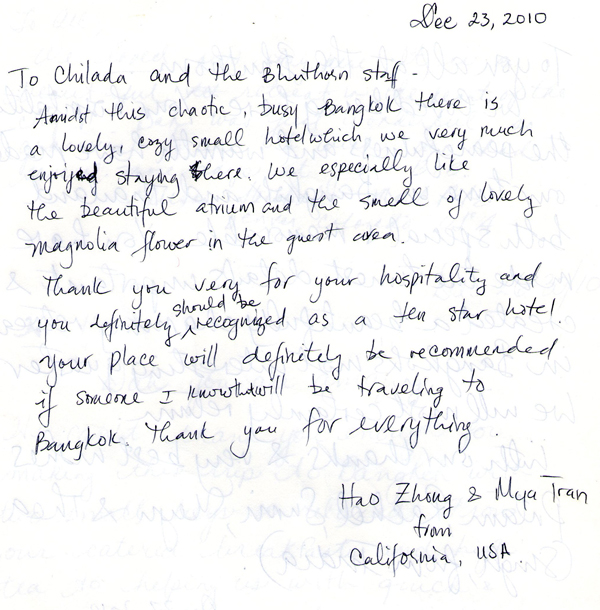 Dec 23, 2010
To Chilada and the Bhuthorn staff -
Amidst this chaotic, busy Bangkok there is
a lovely, cozy small hotel which we very much
enjoyed staying here. We especially like
the beautiful atrium and the smell of lovely
magnolia flower in the guest area.
Thank you very for your hospitality and
you definitely should be recognized as a ten star hotel.
Your place will definitely be recommended
if someone I know that will be traveling to
Bangkok. Thank you for everything.
Hao Zhong & Mya Tran
from
California, USA.